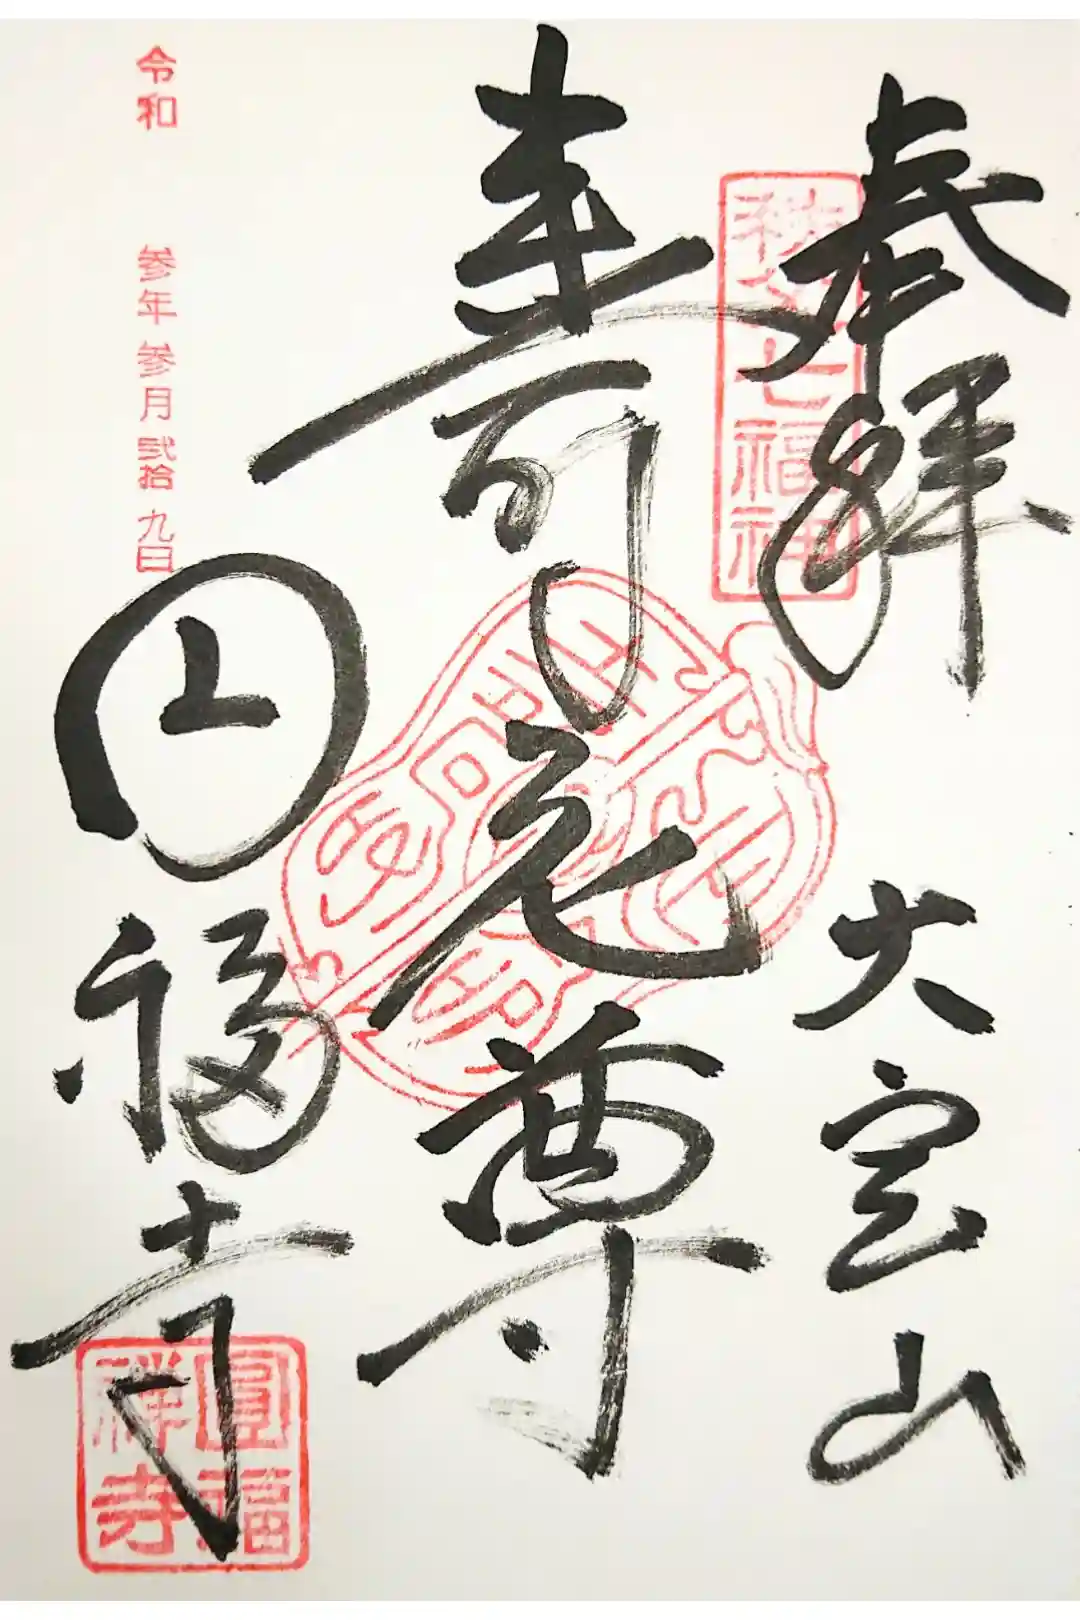 奉拝
大宮山
秩父七福神
寿老尊
円福寺
令和 参年 参月 弐拾九日
圓福
禅寺